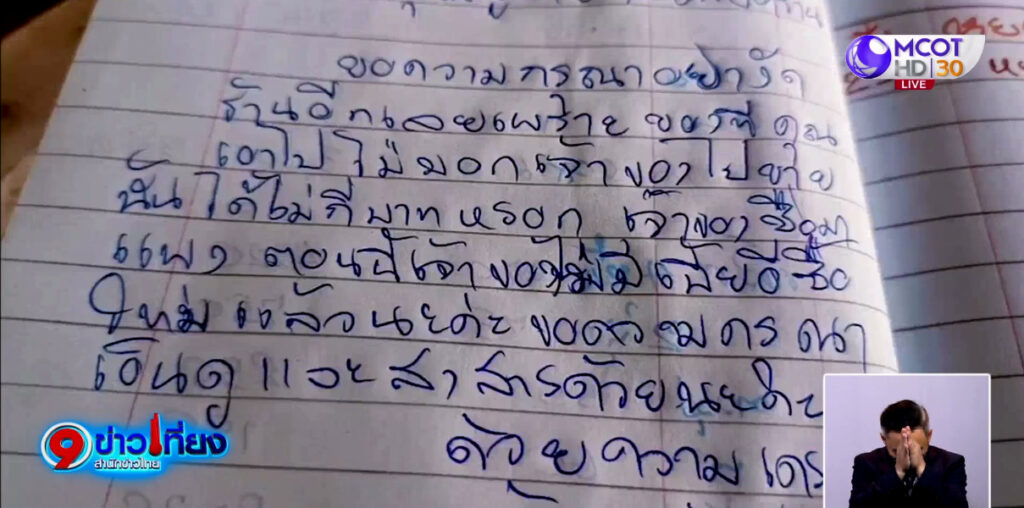 ขอความกรุณาอย่างัด
ร้านอีกเลยเพร้าย ของที่คุณ
เอาไปไม่บอกเจ้าของไปขาย
นั้นได้ไม่กี่บาทหรอก เจ้าของซื้อมา
แพง ตอนนี้เจ้าของไม่มี
ใหม่แล้วนะค่ะ ขอความกรุณา
เอ็นดูและสงสารด้วยนะค่ะ
ด้วยความ
MCOT
HD 30
LIVE
9 ข่าวเที่ยง
สำนักข่าวไทย